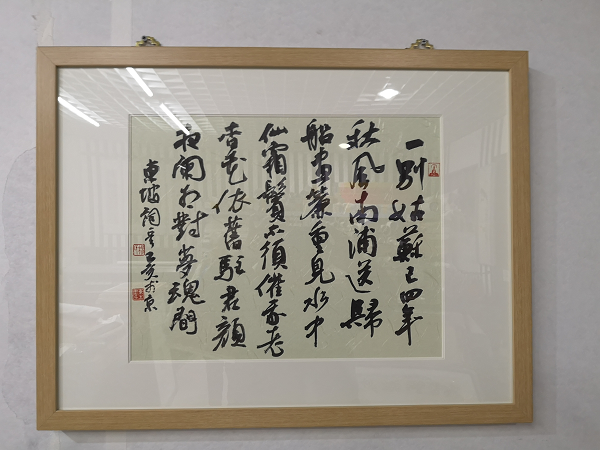 一別姑蘇已四年
秋風南浦送歸
船畫簾重見水中
仙霜鬢不須催我老
杏花依舊駐君顏
夜闌相對夢魂間
東坡詞 於京